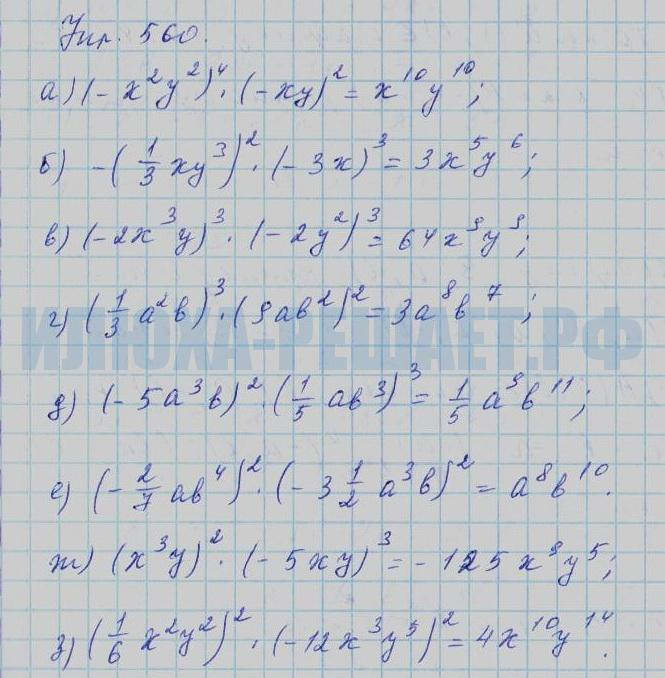 Упр. 560.
а) (-x²y²)⁴·(-xy)² = x¹⁰y¹⁰;
б) -(1/3 xy³)²·(-3x)³ = 3x⁵y⁶;
в) (-2x³y)³·(-2y²)³ = 64x⁹y⁹;
г) (1/3 a²b)³·(9ab²)² = 3a⁸b⁷;
ИЛЮХА-РЕШАЕТ.РФ
д) (-5a³b)²·(1/5 ab³)³ = 1/5 a⁹b¹¹;
е) (-2/7 ab⁴)²·(-3 1/2 a³b)² = a⁸b¹⁰.
ж) (x³y)²·(-5xy)³ = -125x⁹y⁵;
з) (1/6 x²y²)²·(-12x³y⁵)² = 4x¹⁰y¹⁴.